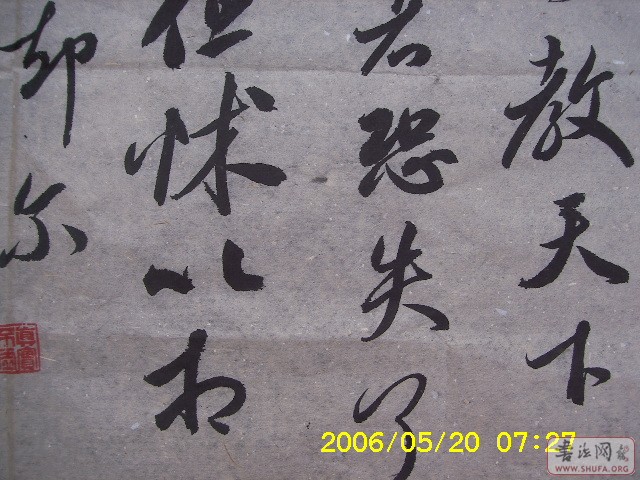 教天下
恐失了
但怵以相
却尔
2006/05/20 07:27
书法网
WWW.SHUFA.ORG